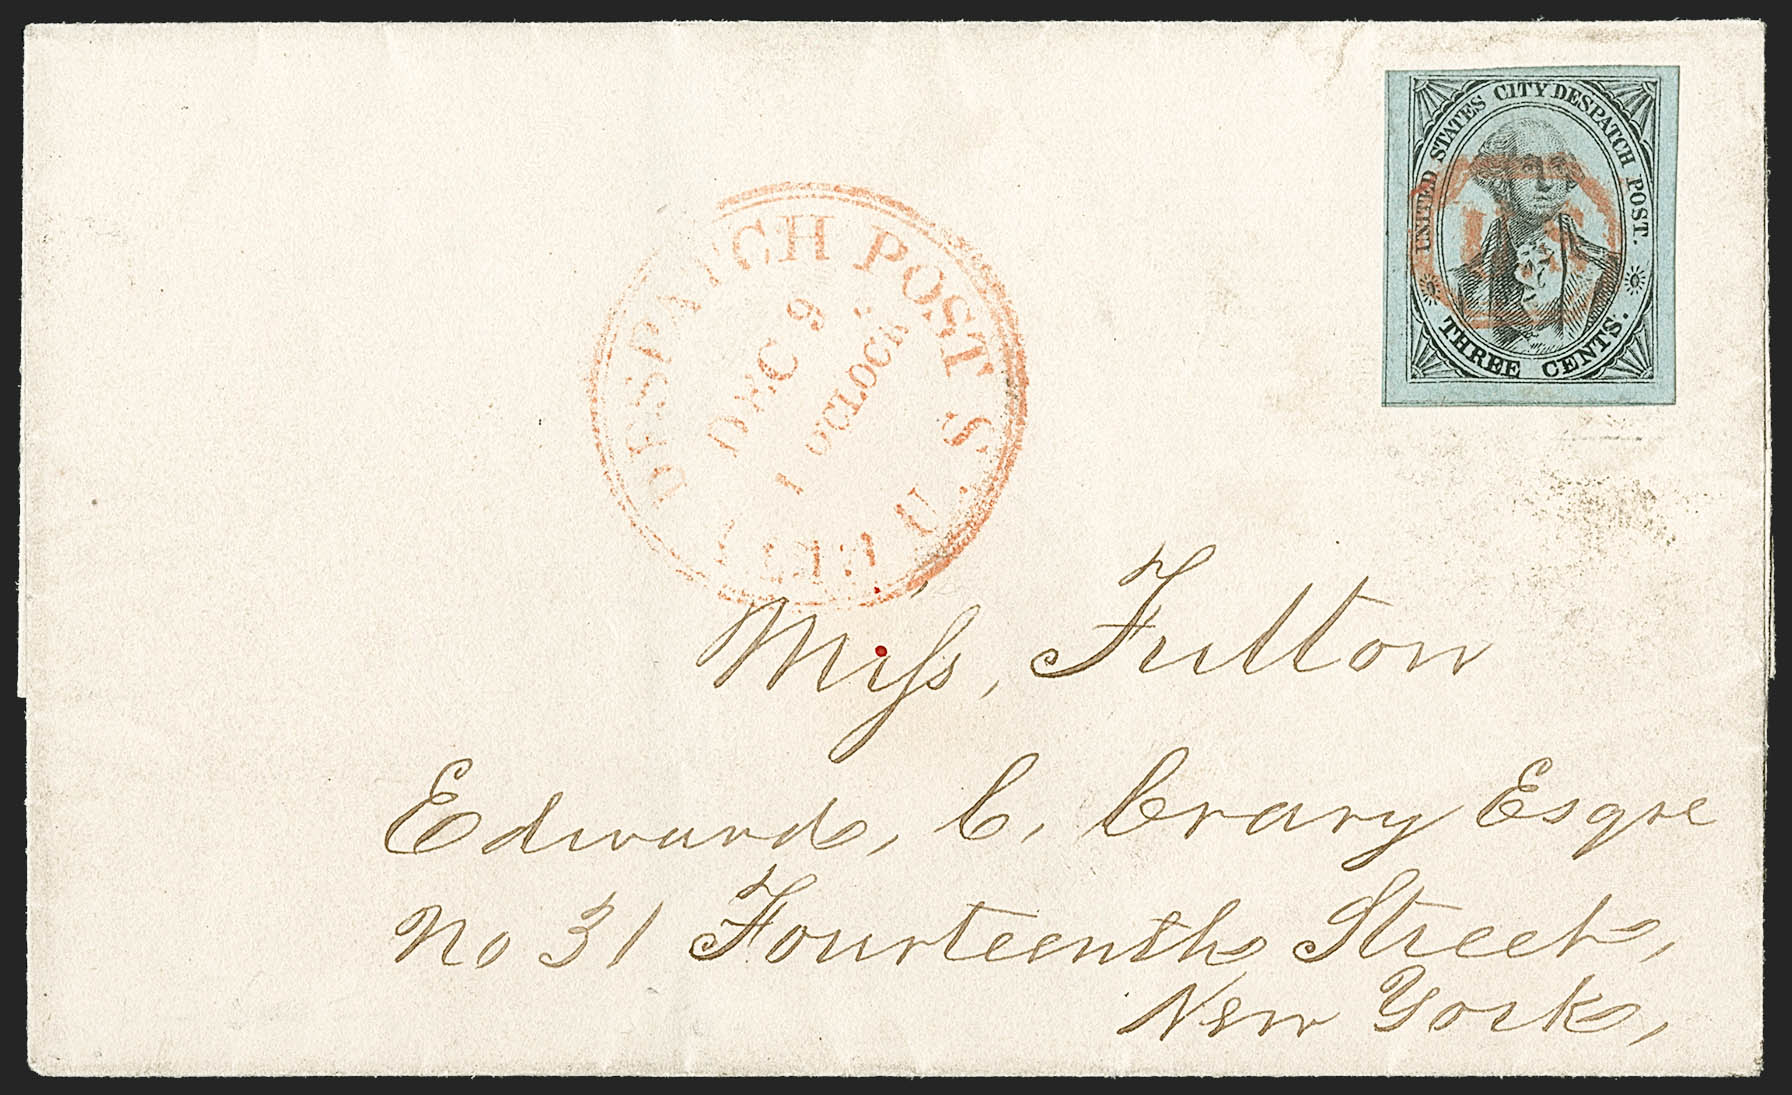 UNITED STATES CITY DESPATCH POST.
THREE CENTS.
U.S
CITY DESPATCH POST
U.S
DEC 9
1 O'CLOCK
Miss, Fulton
Edward, C, Crary Esqre
No 31 Fourteenth Street,
New York,